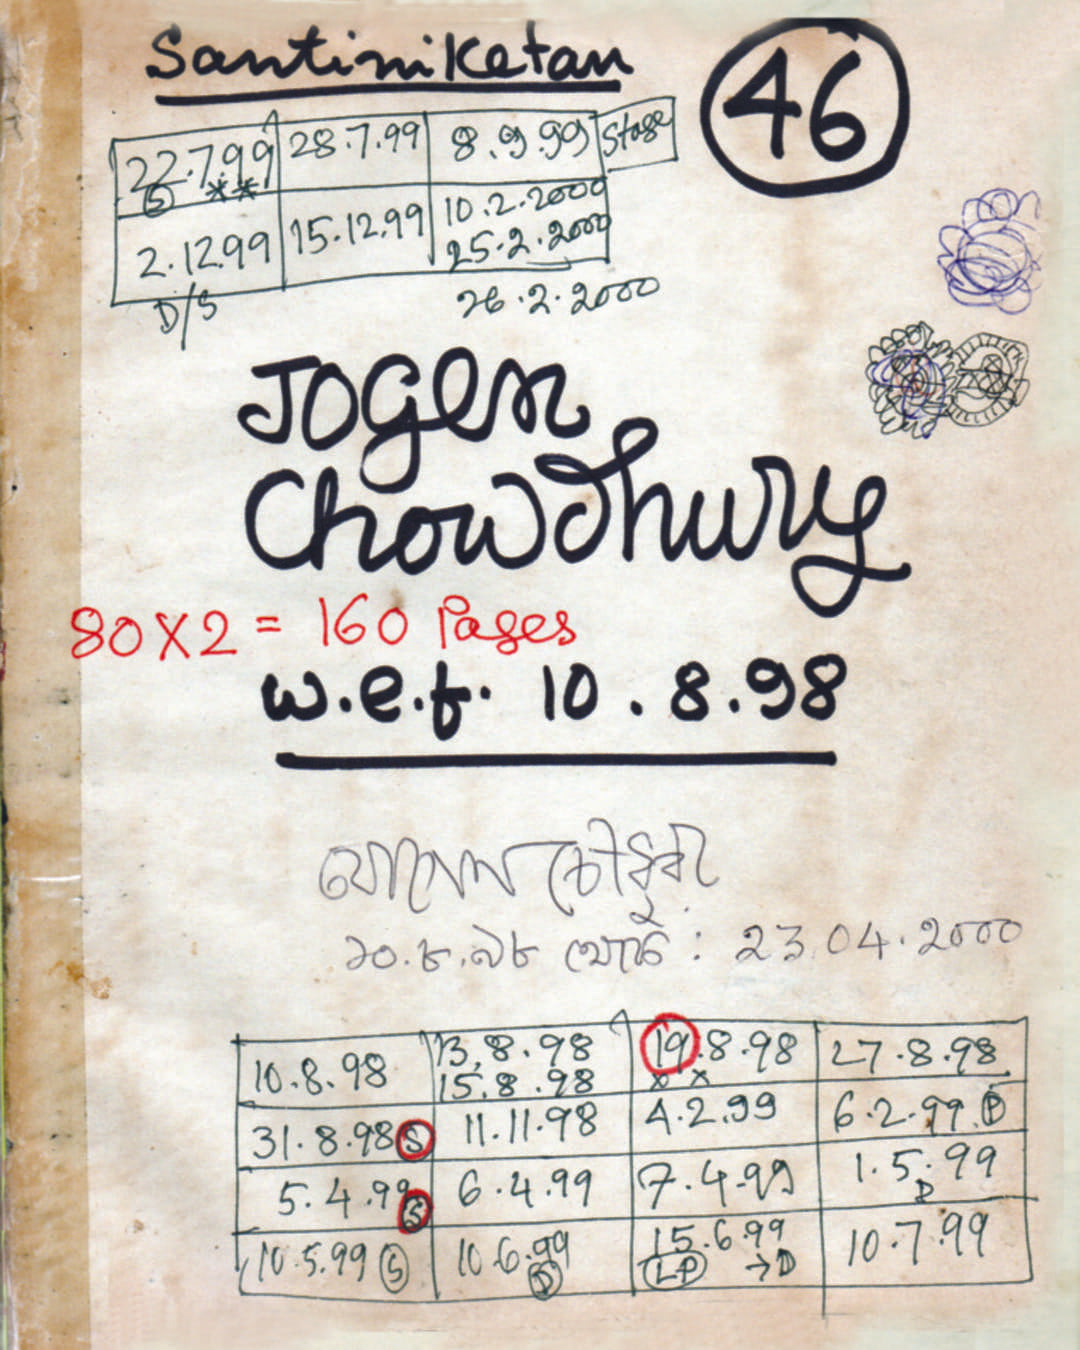 Santiniketan
46
22.7.99 28.7.99 8.9.99 Stage
S **
2.12.99 15.12.99 10.2.2000
25.2.2000
D/S 26.2.2000
Jogen
Chowdhury
80X2 = 160 Pages
w.e.f. 10.8.98
যোগেন চৌধুরী
১০.৮.৯৮ থেকে : 23.04.2000
10.8.98 13.8.98 19.8.98 27.8.98
15.8.98 x x
31.8.98 S 11.11.98 4.2.99 6.2.99. P
5.4.99 S 6.4.99 7.4.99 1.5.99
D
10.5.99 S 10.6.99 15.6.99 10.7.99
D LP →D